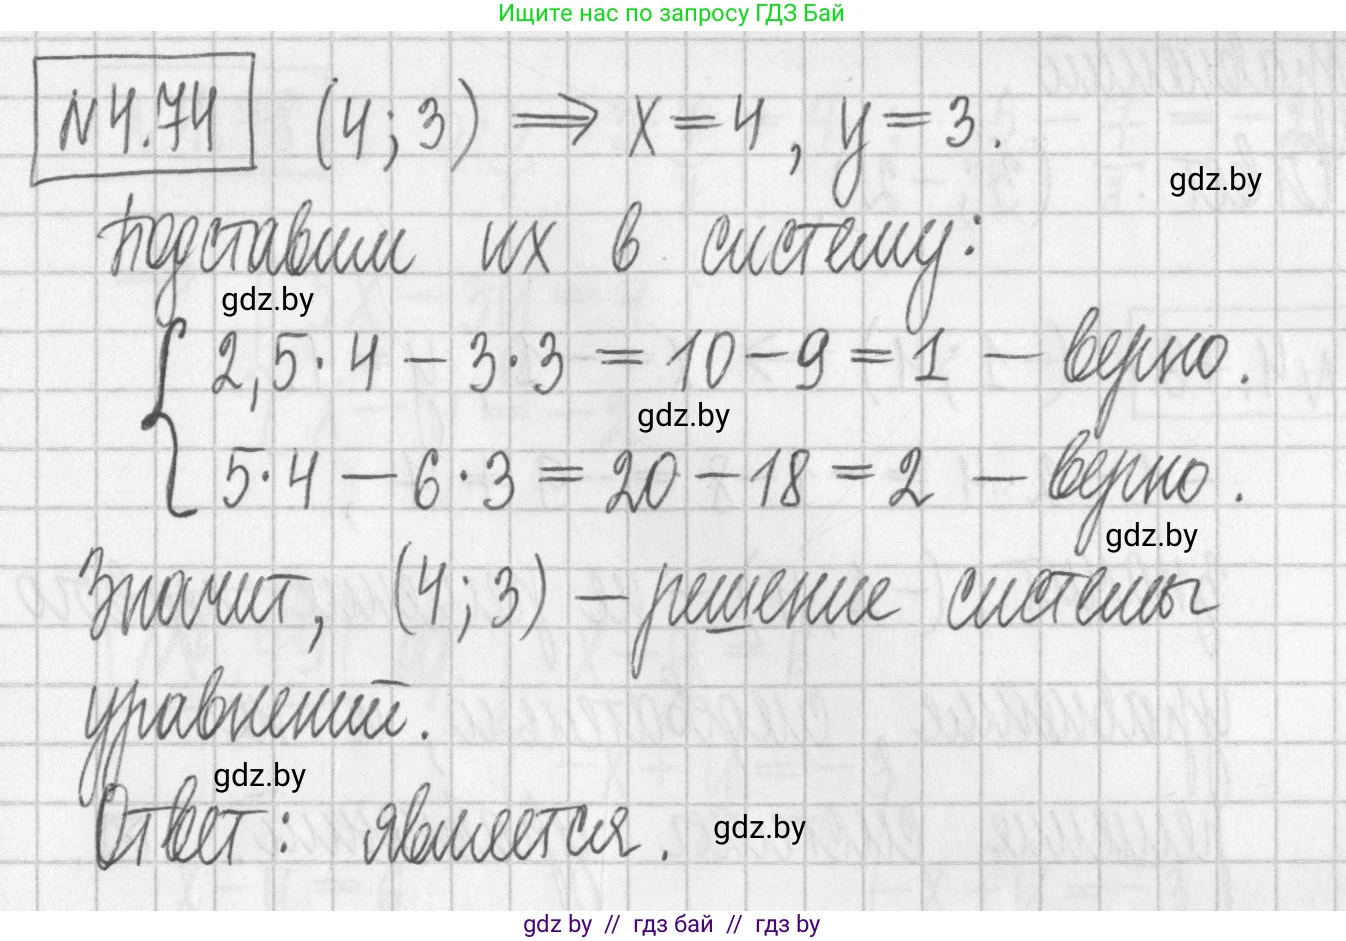 Ищите нас по запросу ГДЗ Бай
№4.74 (4;3) ⟹ x=4, y=3.
gdz.by
Подставим их в систему:
gdz.by
{ 2,5·4 − 3·3 = 10 − 9 = 1 — верно.
gdz.by
5·4 − 6·3 = 20 − 18 = 2 — верно.
gdz.by
Значит, (4;3) — решение системы
уравнений.
gdz.by
Ответ: является.
gdz.by
gdz by // гдз бай // гдз by